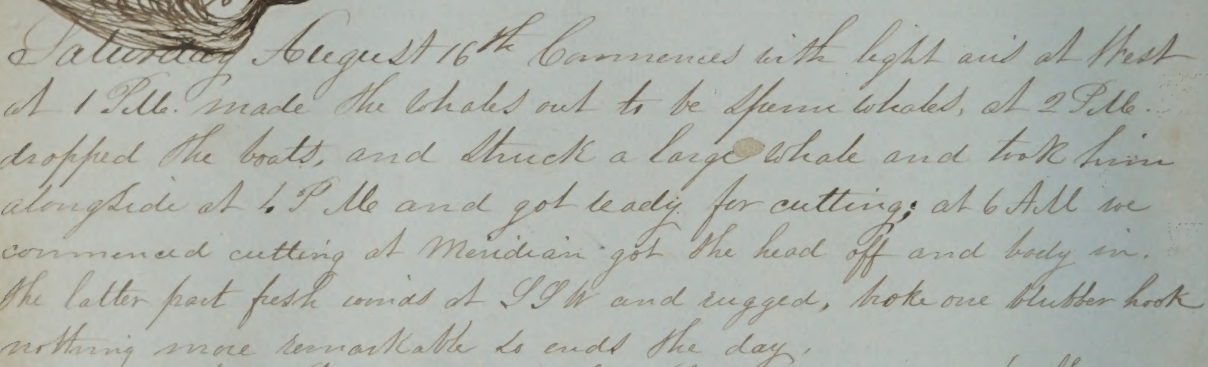 Saturday August 16th Commences with light airs at West
at 1 P.M. made the whales out to be sperm whales, at 2 P.M.
dropped the boats, and struck a large whale and took him
alongside at 4 P M and got ready for cutting; at 6 A M we
commenced cutting at Meridian got the head off and body in.
the latter part fresh winds at S S W and rugged, broke one blubber hook
nothing more remarkable so ends the day.